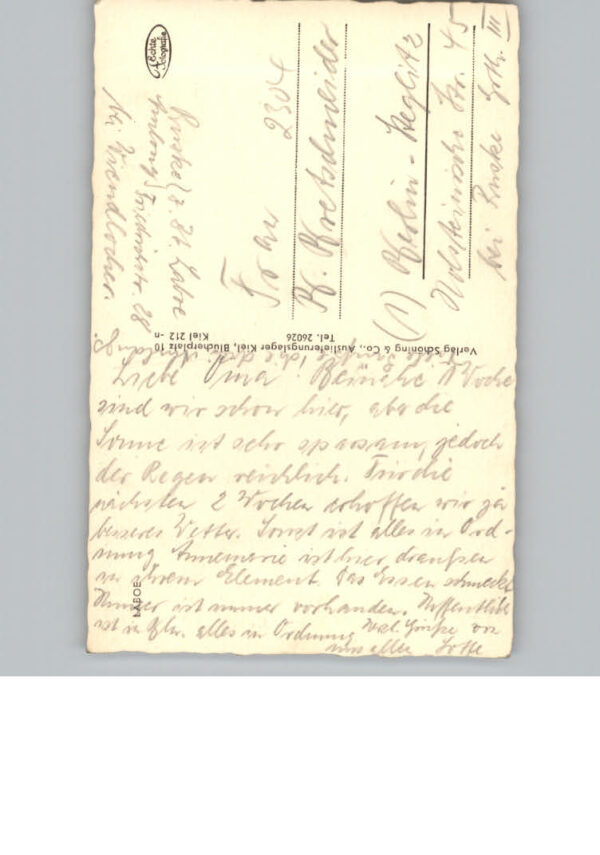 Liebe Oma! Beinahe 1 Woche
sind wir schon hier, aber die
Sonne ist sehr sparsam, jedoch
der Regen reichlich. Für die
nächsten 2 Wochen erhoffen wir ja
besseres Wetter. Sonst ist alles in Ord-
nung Annemarie ist hier draußen
in ihrem Element. Das Essen schmeckt
Hunger ist immer vorhanden. Hoffentlich
ist in Bln. alles in Ordnung Herzl. Grüße von
uns allen Lotte
Frau
2304
Kretschneider
(1) Berlin-Steglitz
Holsteinische Str. 45
bei Ruske Gth. III
Ruske z. Zt. Laboe
Friedrichstr. 28
bei
Echte Fotografie
Verlag Schöning & Co., Auslieferungslager Kiel, Blücherplatz 10
Tel. 26026
Kiel 212 -n
LABOE